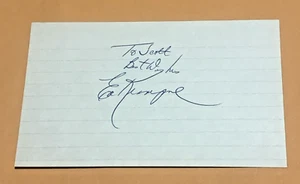 To Scott
Best Wishes
Ed Kranepool